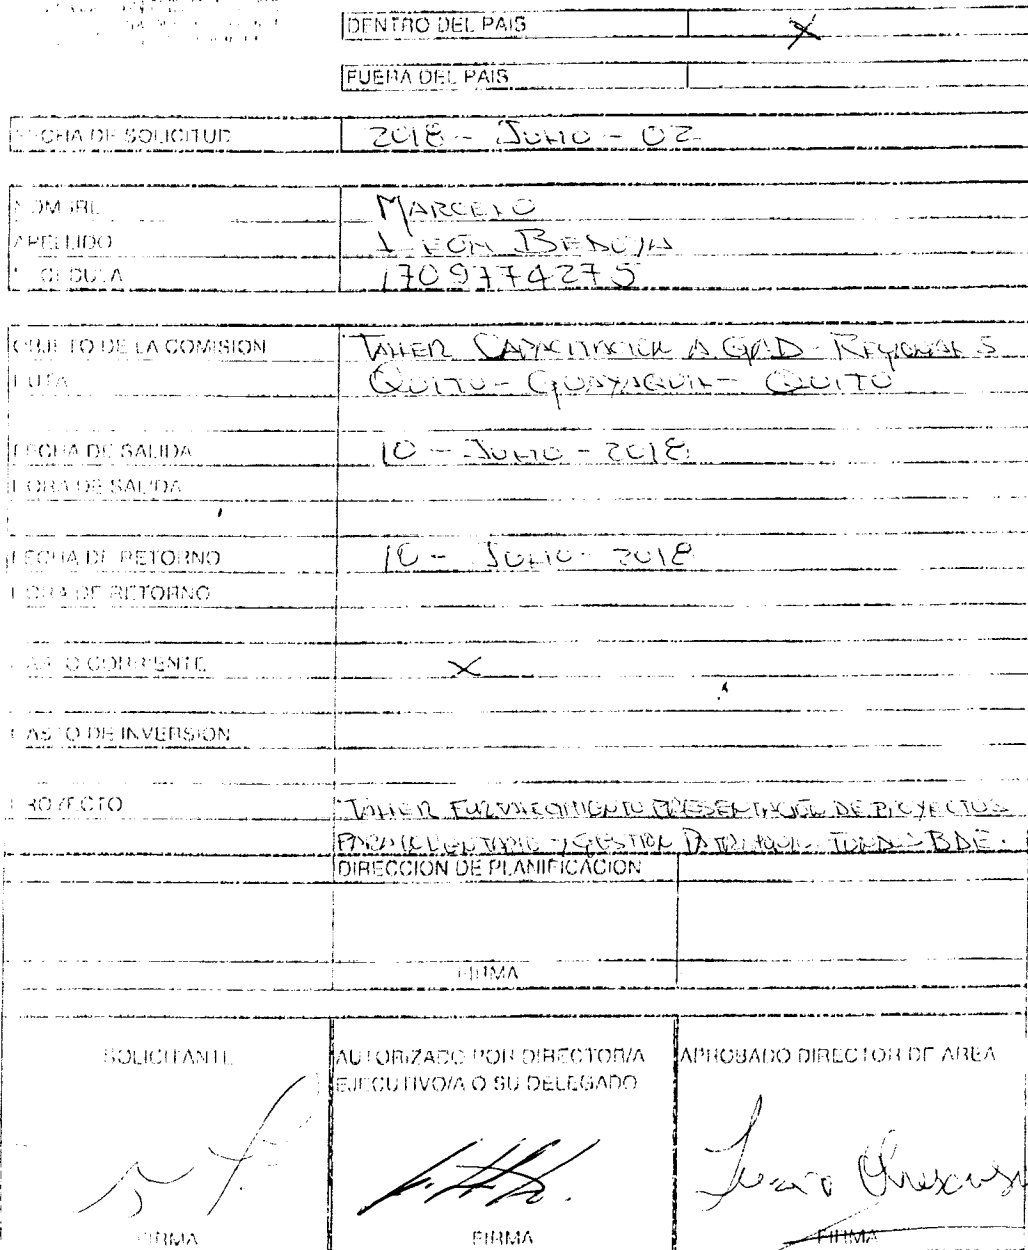 DENTRO DEL PAIS X
FUERA DEL PAIS
FECHA DE SOLICITUD 2018 - JULIO - 02
NOMBRE MARCELO
APELLIDO LEON BEDOYA
CEDULA 1709774275
OBJETO DE LA COMISION TALLER CAPACITACION A GAD - REGIONAL 5
RUTA QUITO - GUAYAQUIL - QUITO
FECHA DE SALIDA 10 - JULIO - 2018
HORA DE SALIDA
FECHA DE RETORNO 10 - JULIO - 2018
HORA DE RETORNO
GASTO CORRIENTE X
GASTO DE INVERSION
PROYECTO TALLER FORTALECIMIENTO PRESENTACIÓN DE PROYECTOS
GESTION BDE.
DIRECCION DE PLANIFICACION
FIRMA
SOLICITANTE AUTORIZADO POR DIRECTOR/A APROBADO DIRECTOR DE AREA
EJECUTIVO/A O SU DELEGADO
FIRMA FIRMA FIRMA